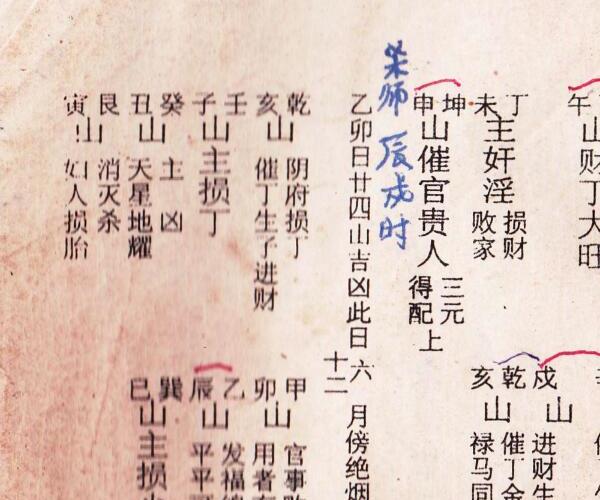 午山财丁大旺
丁未主奸淫
损财
败家
坤申山催官贵人
三元
得配
上
师 辰戌时
乙卯日廿四山吉凶此日
六
十二
月傍绝烟
乾亥山
阴府损丁
催丁生子进财
壬子山主损丁
癸丑山
主凶
天星地耀
艮寅山
消灭杀
妇人损胎
戌山
进财生
乾亥山
催丁金
禄马同
甲卯山
官事
用者
乙辰山
发福
平平
巽巳山主损